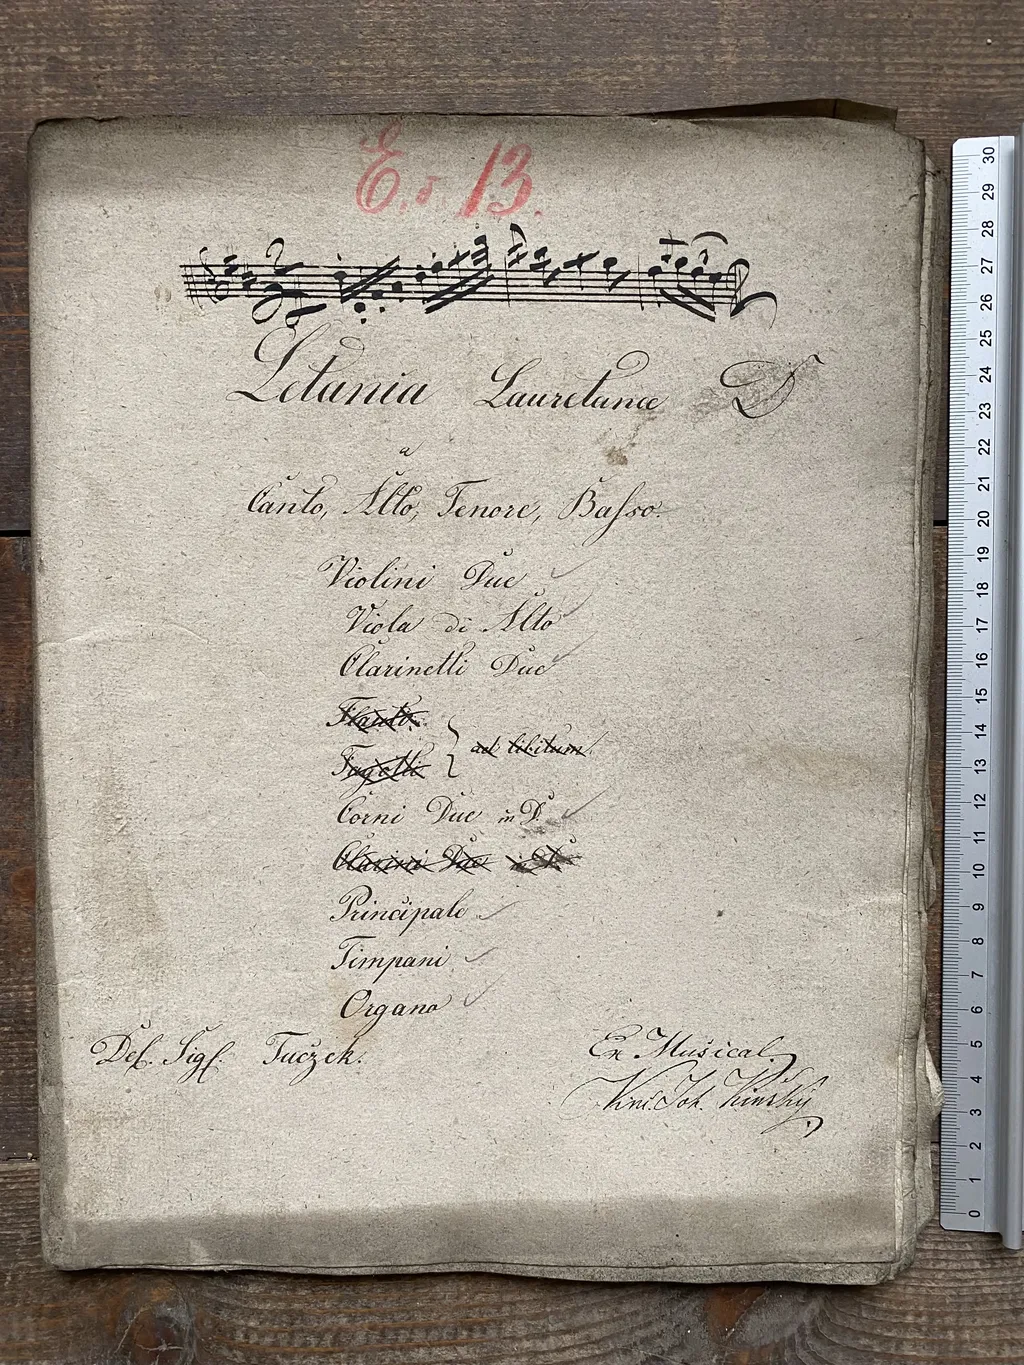 E. 13.
Letania Lauretanæ D
a
Canto, Alto, Tenore, Basso.
Violini Due
Viola di Alto
Clarinetti Due
Flauto.
ad libitum.
Fagotti
Corni Due in D.
Clarini Due in D.
Principale
Timpani
Organo
Del. Sigl. Tuczek.
Ex Musical.
Joh. Kinsky
30
29
28
27
26
25
24
23
22
21
20
19
18
17
16
15
14
13
12
11
10
9
8
7
6
5
4
3
2
1
0